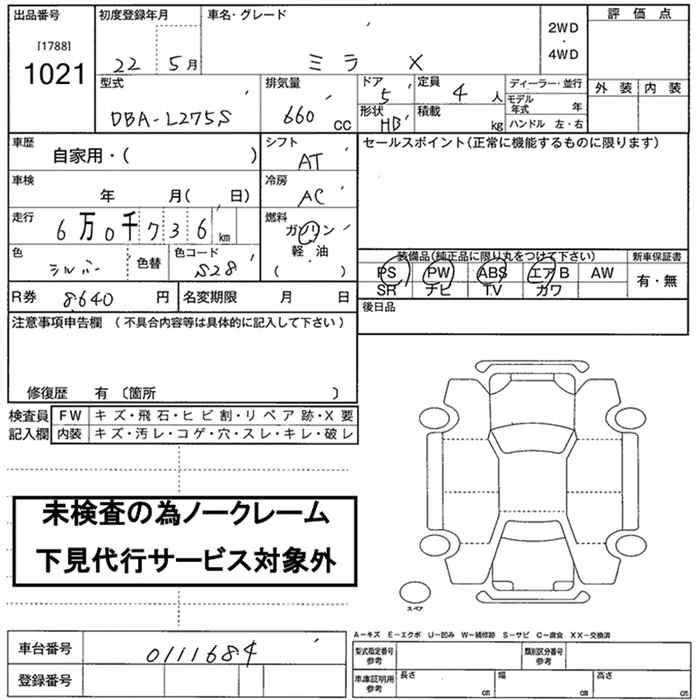 出品番号 初度登録年月 車名・グレード 評価点
[1788]
1021
22 5月 ミラ X
2WD
・
4WD
型式 排気量 ドア 定員 ディーラー・並行 外装 内装
DBA-L275S 660 CC 5 4人
モデル年式 年
形状 HB 積載 kg ハンドル 左・右
車歴 自家用・( ) シフト AT セールスポイント(正常に機能するものに限ります)
車検 年 月( 日) 冷房 AC
走行 6万0千736km 燃料 ガソリン
軽・油
( )
色 シルバー 色替 色コード S28
装備品(純正品に限り丸をつけて下さい) 新車保証書
PS PW ABS エアB AW 有・無
SR ナビ TV カワ
R券 8640円 名変期限 月 日 後日品
注意事項申告欄 (不具合内容等は具体的に記入して下さい)
修復歴 有 〔箇所 〕
検査員 FW キズ・飛石・ヒビ割・リペア跡・X要
記入欄 内装 キズ・汚レ・コゲ・穴・スレ・キレ・破レ
未検査の為ノークレーム
下見代行サービス対象外
スペア
A－キズ E－エクボ U－凹み W－補修跡 S－サビ C－腐食 XX－交換済
車台番号 0111684
型式指定番号 参考 類別区分番号 参考
登録番号
車庫証明用 参考 長さ cm 幅 cm 高さ cm